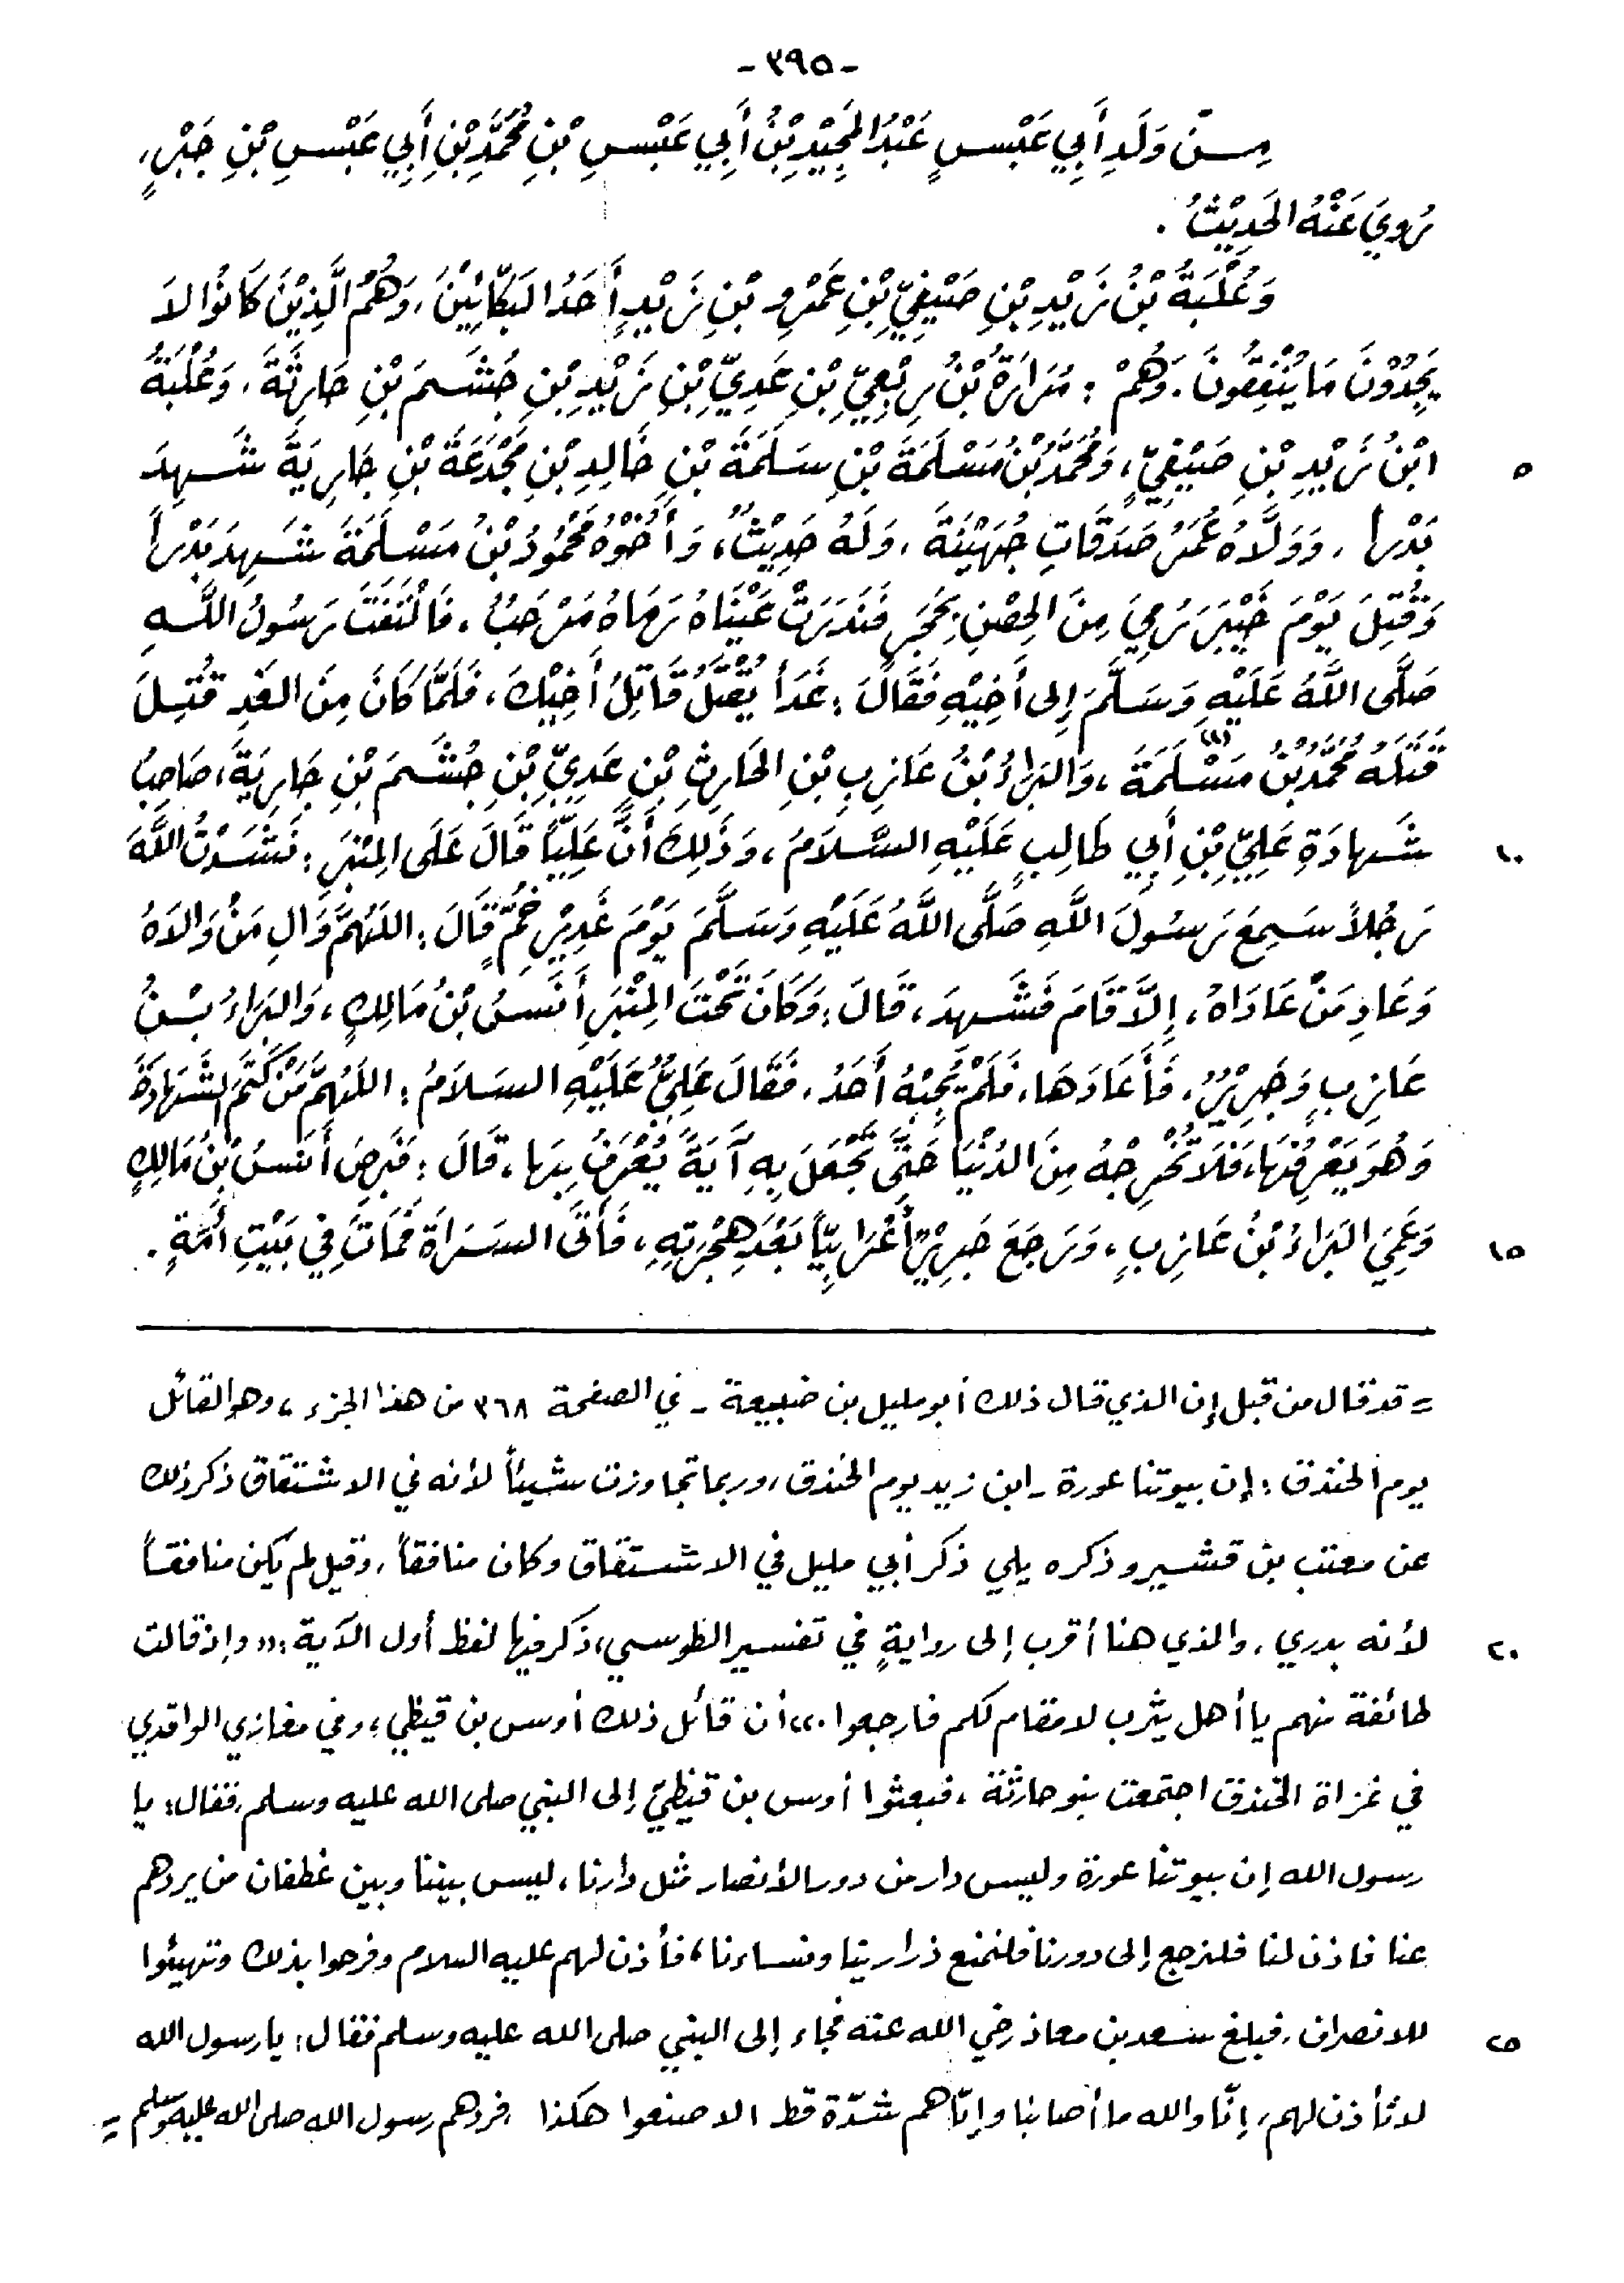 - ٣٩٥ -
مِنْ وَلَدِ أَبِي عَبْسٍ عَبْدُ المَجِيْدِ بْنُ أَبِي عَبْسِ بْنِ مُحَمَّدِ بْنِ أَبِي عَبْسِ بْنِ جَبْرٍ،
رُوِيَ عَنْهُ الحَدِيْثُ .
وَعُلْبَةُ بْنُ زَيْدِ بْنِ صَيْفِيِّ بْنِ عَمْرِو بْنِ زَيْدٍ أَحَدُ البَكّائِيْنَ، وَهُمُ الَّذِيْنَ كَانُوا لاَ
يَجِدُوْنَ مَا يُنْفِقُونَ. وَهُمْ : مَرَارَةُ بْنُ رِبْعِيِّ بْنِ عَدِيِّ بْنِ زَيْدِ بْنِ جُشَمَ بْنِ حَارِثَةَ، وَعُلْبَةُ
ابْنُ زَيْدِ بْنِ صَيْفِيٍّ، وَمُحَمَّدُ بْنُ مَسْلَمَةَ بْنِ سَلَمَةَ بْنِ خَالِدِ بْنِ مَجْدَعَةَ بْنِ حَارِيَةَ شَهِدَ ٥
بَدْراً، وَوَلَّاهُ عُمَرُ صَدَقَاتِ جُهَيْنَةَ، وَلَهُ حَدِيْثٌ، وَأَخُوْهُ مَحْمُودُ بْنُ مَسْلَمَةَ شَهِدَ بَدْراً
وَقُتِلَ يَوْمَ خَيْبَرَ رُمِيَ مِنَ الحِصْنِ بِحَجَرٍ فَنَدَرَتْ عَيْنَاهُ رَمَاهُ مَرْحَبٌ، فَالْتَفَتَ رَسُولُ اللَّهِ
صَلَّى اللَّهُ عَلَيْهِ وَسَلَّمَ إِلى أَخِيْهِ فَقَالَ : غَدَاً يُقْتَلُ قَاتِلُ أَخِيْكَ، فَلَمَّا كَانَ مِنَ الغَدِ قُتِلَ
قَتَلَهُ مُحَمَّدُ بْنُ مَسْلَمَةَ(١)، وَالبَرَاءُ بْنُ عَازِبِ بْنِ الحَارِثِ بْنِ عَدِيِّ بْنِ جُشَمَ بْنِ حَارِيَةَ، صَاحِبُ
شَهادَةِ عَلِيِّ بْنِ أَبِي طَالِبٍ عَلَيْهِ السَّلاَمُ، وَذَلِكَ أَنَّ عَلِيّاً قَالَ عَلَى المِنْبَرِ : نَشَدْتُ اللَّهَ ١٠
رَجُلاً سَمِعَ رَسُولَ اللَّهِ صَلَّى اللَّهُ عَلَيْهِ وَسَلَّمَ يَوْمَ غَدِيْرِ خُمٍّ قَالَ : اللَهُمَّ وَالِ مَنْ وَالاَهُ
وَعَادِ مَنْ عَادَاهُ، إِلاَّ قَامَ فَشَهِدَ، قَالَ : وَكَانَ تَحْتَ المِنْبَرِ أَنَسُ بْنُ مَالِكٍ، وَالبَرَاءُ بْنُ
عَازِبٍ وَجَرِيْرٌ، فَأَعَادَهَا، فَلَمْ يُجِبْهُ أَحَدٌ، فَقَالَ عَلِيٌّ عَلَيْهِ السَلاَمُ : اللَهُمَّ مَنْ كَتَمَ الشَهَادَةَ
وَهُوَ يَعْرِفُهَا، فَلاَ تُخْرِجْهُ مِنَ الدُنْيَا حَتَّى تَجْعَلَ بِهِ آيَةً يُعْرَفُ بِهَا، قَالَ : فَبَرِصَ أَنَسُ بْنُ مَالِكٍ
وَعَمِيَ البَرَاءُ بْنُ عَازِبٍ، وَرَجَعَ جَرِيْرٌ أَعْرَابِيّاً بَعْدَ هِجْرَتِهِ، فَأَتَى السَرَاةَ فَمَاتَ فِي بَيْتِ أُمِّهِ . ١٥
= قد قال من قبل إن الذي قال ذلك أبو مليل بن ضبيعة - في الصفحة ٣٦٨ من هذا الجزء، وهو القائل
يوم الخندق : إن بيوتنا عورة - ابن زيد يوم الخندق، وربما تجاوزت شيئاً لأنه في الاشتقاق ذكر ذلك
عن معتب بن قشير وذكره يلي ذكر أبي مليل في الاشتقاق وكان منافقاً، وقيل لم يكن منافقاً
لأنه بدري، والذي هنا أقرب إلى روايةٍ في تفسير الطوسي، ذكر فيها لفظ أول الآية : « وإذ قالت ٢٠
طائفة منهم يا أهل يثرب لا مقام لكم فارجعوا .» أن قائل ذلك أوس بن قيظي، وفي مغازي الواقدي
في غزاة الخندق اجتمعت بنو حارثة، فبعثوا أوس بن قيظيّ إلى النبي صلى الله عليه وسلم، فقال : يا
رسول الله إن بيوتنا عورة وليس دار من دور الأنصار مثل دارنا، ليس بيننا وبين غطفان من يردهم
عنا فاذن لنا فلنرجع إلى دورنا فلنمنع ذرارينا ونساءنا، فأذن لهم عليه السلام وفرحوا بذلك وتهيئوا
للانصراف، فبلغ سعد بن معاذ رضي الله عنه فجاء إلى النبي صلى الله عليه وسلم فقال : يا رسول الله ٢٥
لا تأذن لهم، إنّا والله ما أصابنا وإيّاهم شدّة قط الا صنعوا هكذا، فردهم رسول الله صلى الله عليه وسلم =